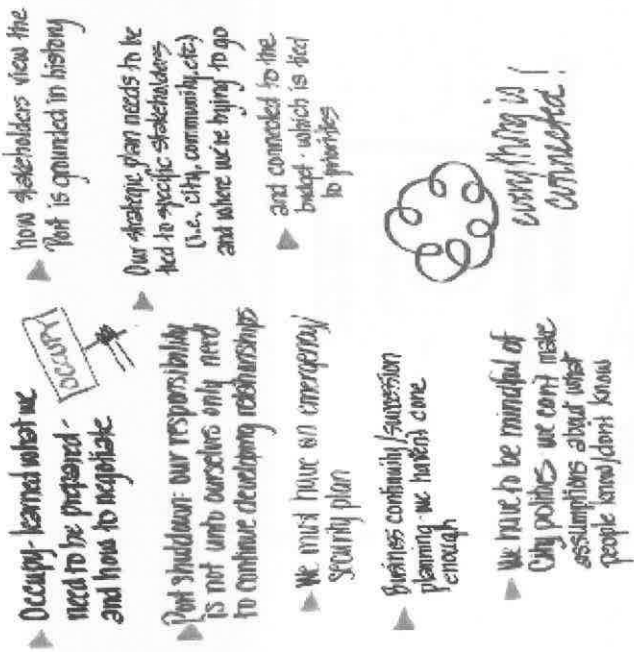 Occupy - learned what we
need to be prepared -
and how to negotiate
OCCUPY
Port shutdown: our responsibility
is not unto ourselves only need
to continue developing relationships
We must have an emergency/
security plan
Business continuity/succession
planning - we haven't done
enough
We have to be mindful of
City politics - we can't make
assumptions about what
people know/don't know
how stakeholders view the
Port is grounded in history
Our strategic plan needs to be
tied to specific stakeholders
(i.e. city, community, etc.)
and where we're trying to go
and connected to the
budget - which is tied
to priorities
everything is
connected!